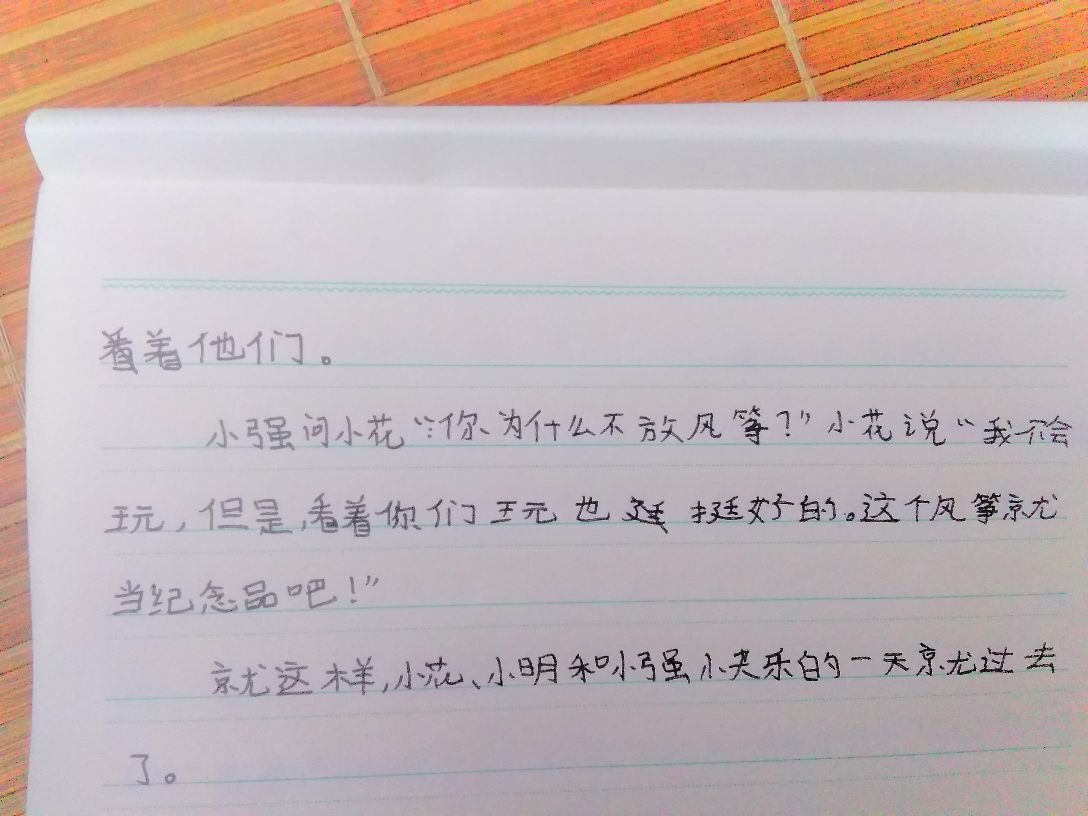 看着他们。
小强问小花“:你为什么不放风筝?”小花说“我不会
玩,但是,看着你们玩也挺好的。这个风筝就
当纪念品吧!”
就这样,小花、小明和小强小夬乐的一天就过去
了。